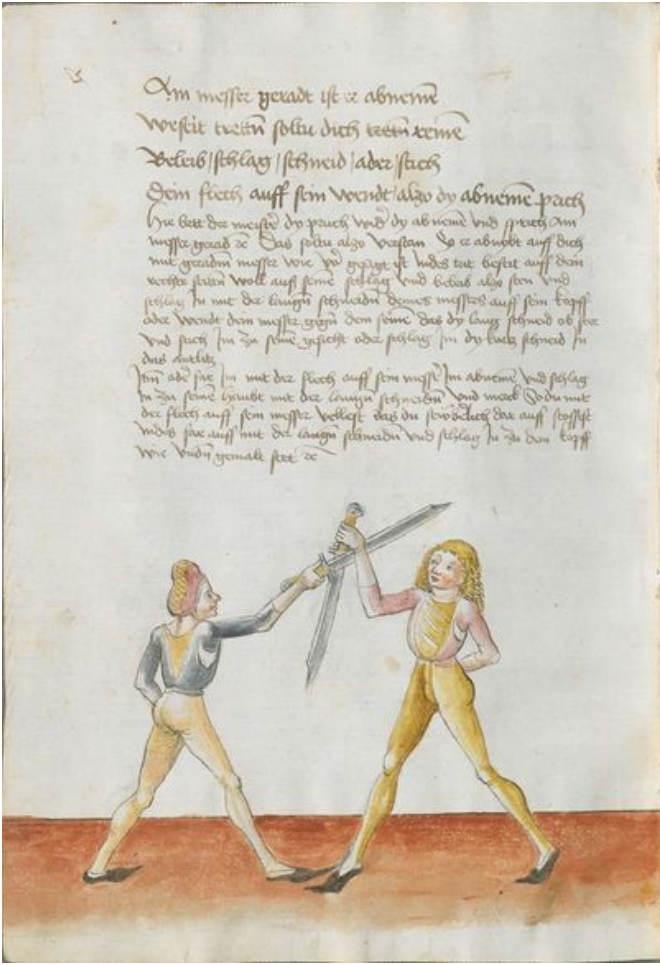 Am messer geradt ist er abnemē
Westit tretn̄ soltu dich tretn̄ remē
Beleib / schlag / schneid / ader stich
Dein flech auff sein wendt / also dy abnemē prich
Hie lert der meister dy pruch wid' dy abnemē und spricht Am
messer gerad ꝛc Das soltu also verstan So er abnӱbt auff dich
mit geradm̄ messer wie vor gesagt ist Indes trit beseit auff dein
rechte seitn̄ woll auß seinē schlag und beleib also sten und
schlag In mit der langn̄ schneidn̄ deines messers auff sein kopff
oder wendt dem messer gegn̄ dem seinē das dy lang schneid ob stee
und stich Im zu seinē gesicht oder schlag Im dy kurcz schneid In
das antlitz
Itm̄ oder far Im mit der flech auff sein messer Im abnemē und schlag
In zu seinē haubt mit der langn̄ schneidn̄ und merck So du mit
der flech auff sein messer vellest das du dar auff stossist
Indes far auff mit der langn̄ schneidn̄ und schlag In zu dem kopff
wie undn̄ gemalt stet ꝛc